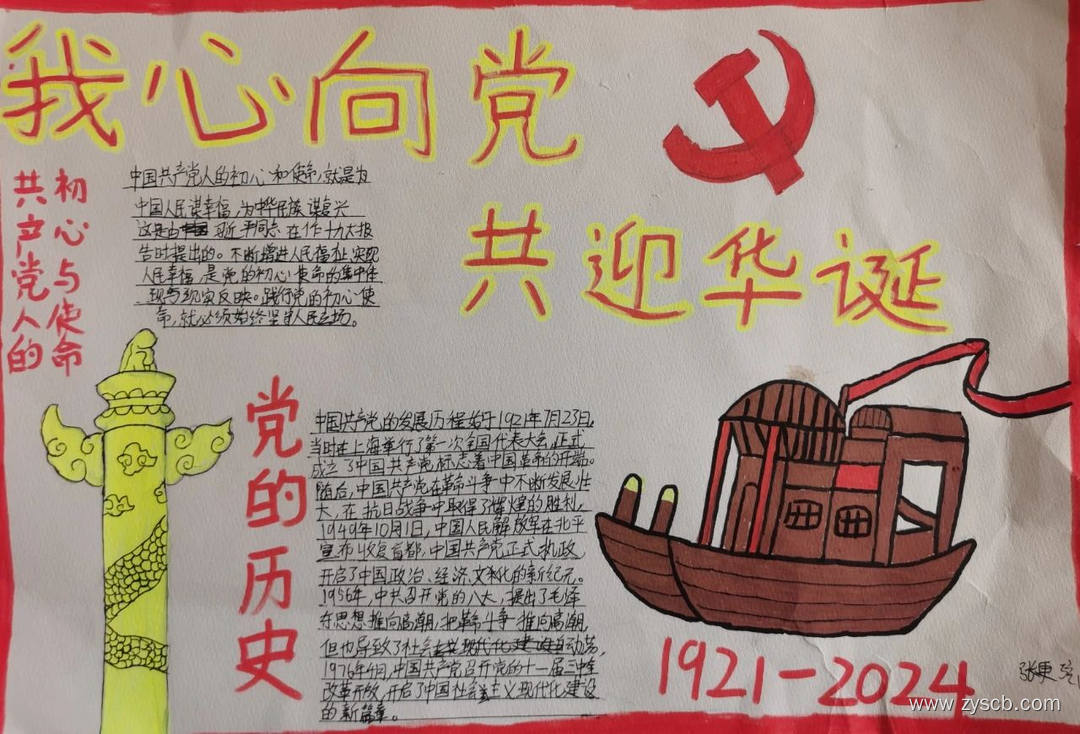 我心向党
共迎华诞
初心与使命
共产党人的
中国共产党人的初心和使命,就是为
中国人民谋幸福,为中华民族谋复兴
这是由 习近平同志在作十九大报
告时提出的。不断增进人民福祉,实现
人民幸福,是党的初心使命的集中体
现与现实反映。践行党的初心使
命,就必须始终坚守人民立场。
党的历史
中国共产党的发展历程始于1921年7月23日,
当时在上海举行了第一次全国代表大会,正式
成立了中国共产党,标志着中国革命的开端。
随后,中国共产党在革命斗争中不断发展壮
大,在抗日战争中取得了辉煌的胜利。
1949年10月1日,中国人民解放军在北平
宣布收复首都,中国共产党正式执政,
开启了中国政治、经济、文化的新纪元。
1956年,中共召开党的八大,提出了毛泽
东思想推向高潮,把革命斗争推向高潮,
但也导致了社会 动荡,
1976年4月,中国共产党召开党的十一届三中全
改革开放,开启了中国社会主义现代化建设
的新篇章。
1921-2024
张更
www.zyscb.com